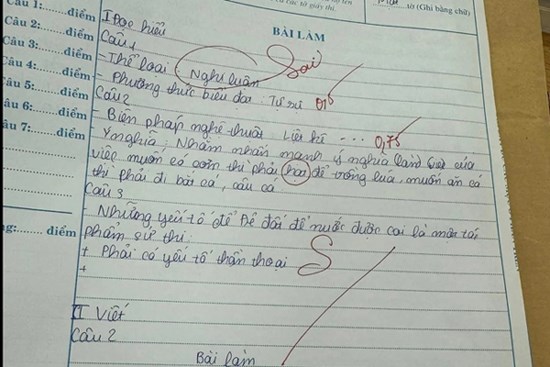 tờ (Ghi bằng chữ)
các tờ giấy thi.
Câu 1:......điểm
Câu 2:......điểm
Câu 3:......điểm
Câu 4:......điểm
Câu 5:......điểm
Câu 6:......điểm
Câu 7:......điểm
điểm
BÀI LÀM
I Đọc hiểu
Câu 1
- Thể loại: Nghị luận Sai
- Phương thức biểu đạt: Tự sự 0,5
Câu 2
- Biện pháp nghệ thuật Liệt kê ... 0,75
- Ý nghĩa: Nhằm nhấn mạnh ý nghĩa của
việc muốn có cơm thì phải để trồng lúa, muốn ăn cá
thì phải đi bắt cá, câu cá
Câu 3
- Những yếu tố để Đẻ đất đẻ nước được coi là một tác
phẩm sử thi:
+ Phải có yếu tố thần thoại S
+
II Viết
Câu 2
Bài làm